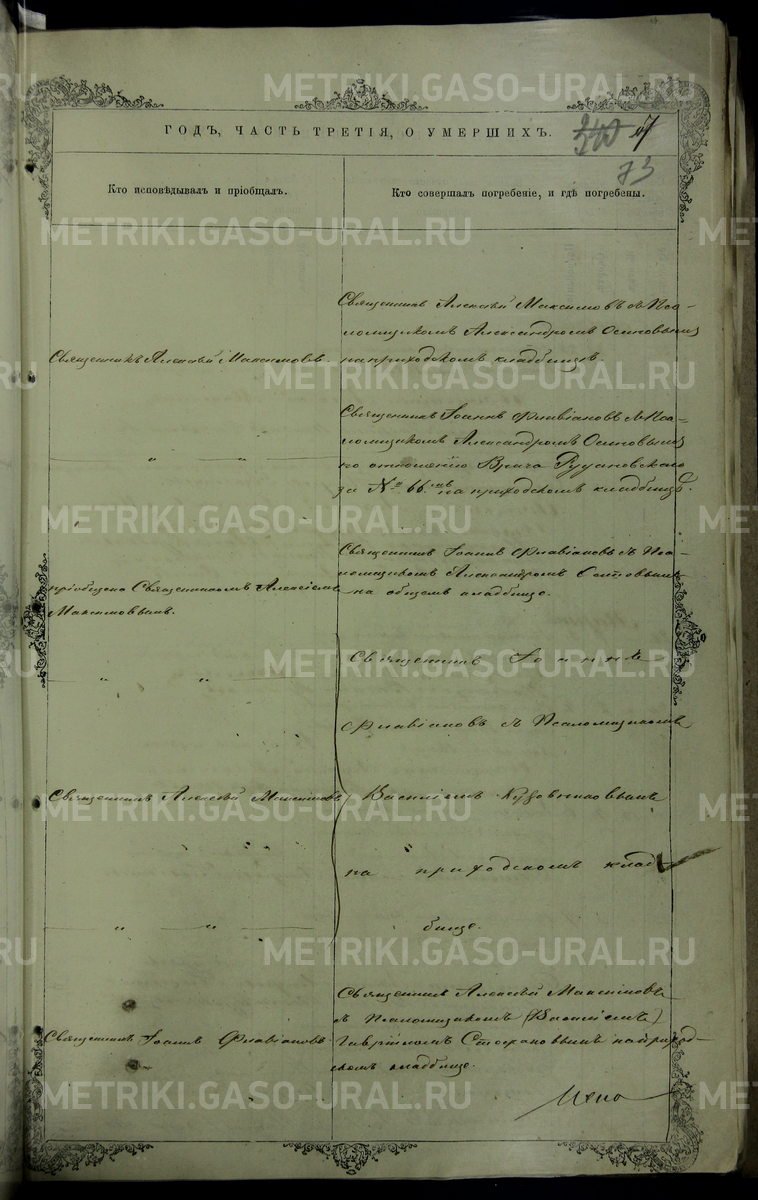 METRIKI.GASO-URAL.RU
ГОДЪ, ЧАСТЬ ТРЕТІЯ, О УМЕРШИХЪ.
73
Кто исповѣдывалъ и пріобщалъ.
Кто совершалъ погребеніе, и гдѣ погребены.
Священникъ Алексѣй Максимовъ съ Пса-
ломщикомъ Александромъ Осиповымъ
Священникъ Алексѣй Максимовъ.
на приходскомъ кладбищѣ.
Священникъ Іоаннъ Флавіановъ съ Пса-
ломщикомъ Александромъ Осиповымъ
" "
по отношенію Врача
за № 66.мъ на приходскомъ кладбищѣ.
Священникъ Іоаннъ Флавіановъ съ Пса-
ломщикомъ Александромъ Осиповымъ
на общемъ кладбищѣ.
пріобщено Священникомъ Алексѣемъ
Максимовымъ.
Священникъ Іоаннъ
" "
Флавіановъ съ Псаломщикомъ
Священникъ Алексѣй Максимовъ
Василіемъ
на приходскомъ клад-
" "
бищѣ.
Священникъ Алексѣй Максимовъ
съ Псаломщикомъ (Василіемъ)
Священникъ Іоаннъ Флавіановъ.
Гавріиломъ Стефановымъ на приход-
скомъ кладбищѣ.